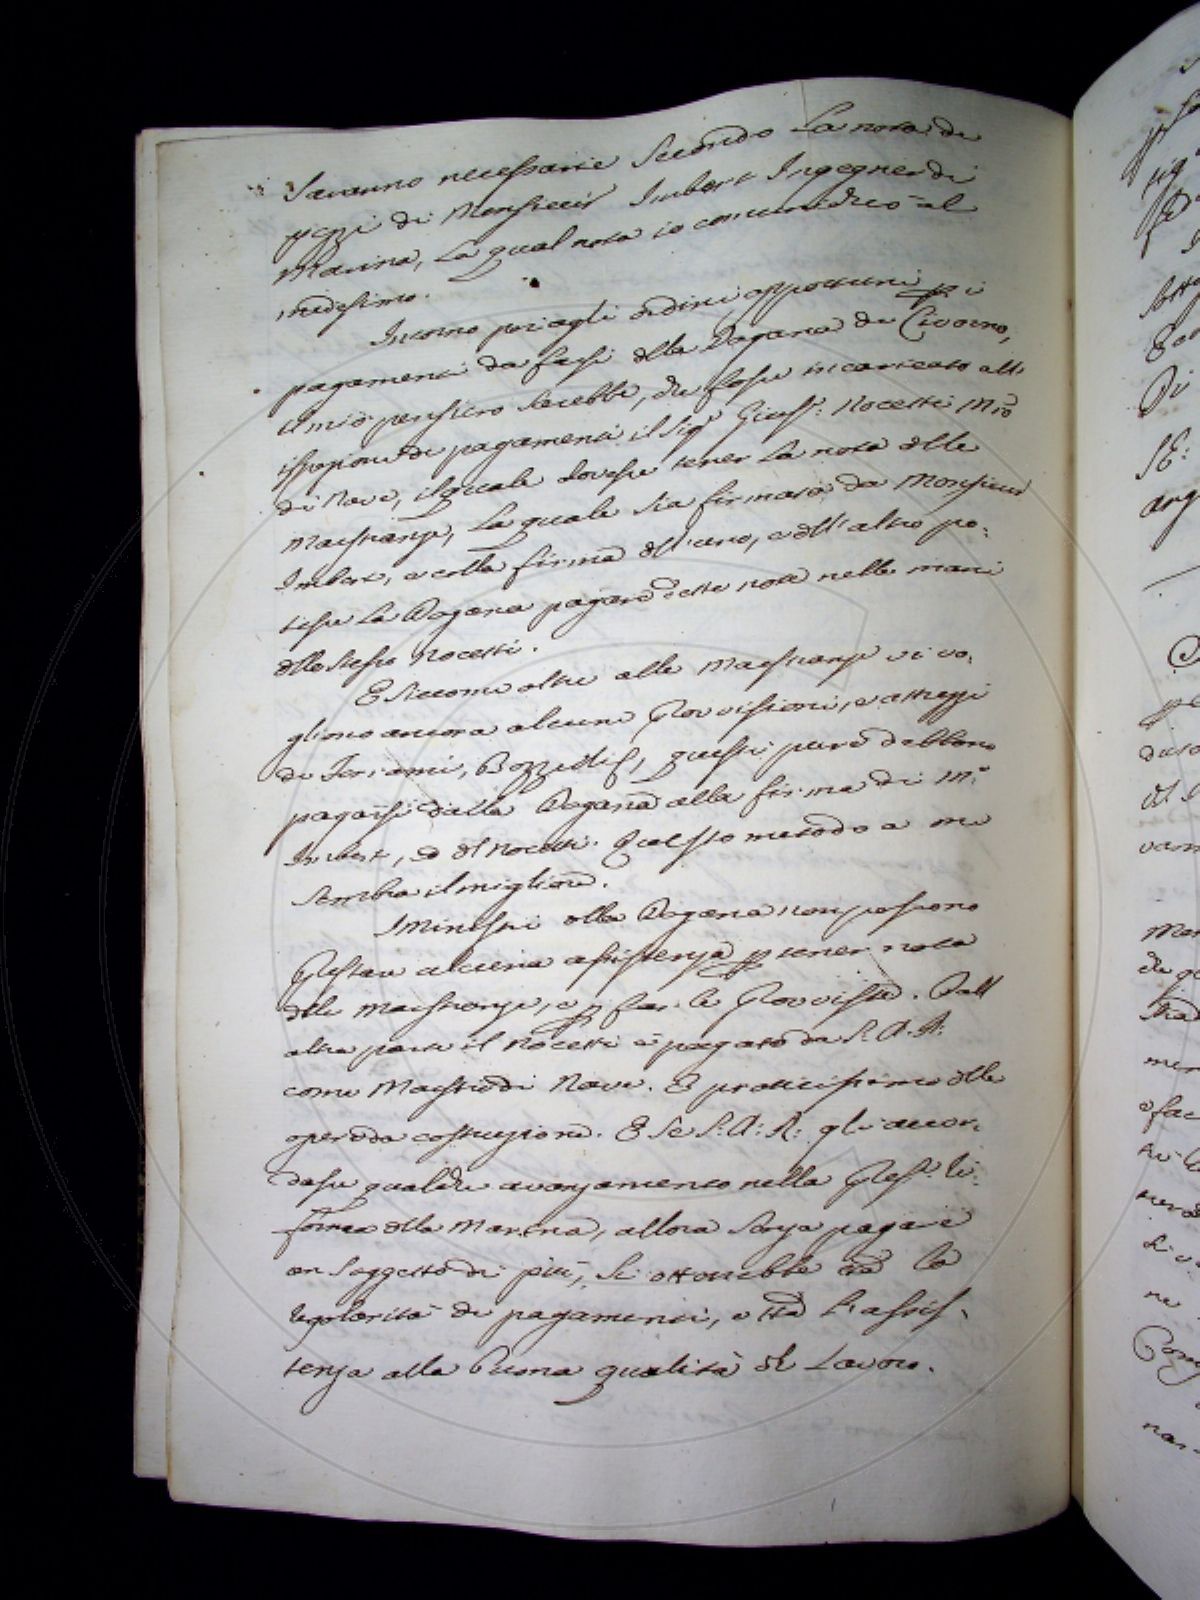 saranno necessarie secondo la nota de
pezzi di Monsieur Imbert Ingegner di
Marina, la qual nota io comunidico al
medesimo.
Intorno poi agli ordini opportuni p i
pagamenti da farsi dlla Dogana di Livorno,
il mio pensiero sarebbe, che fosse incaricato all'
ispezione di pagamenti il Sigr Gius.e: Nocetti Mro
di Nave, il quale dovesse tener la nota dlle
Maestranze, la quale sia firmata da Monsieur
Imbert, e colla firma dll'uno, e dll'altro po-
tesse la Dogana pagare dette note nelle mani
dllo stesso Nocetti.
E siccome oltre alle Maestranze vi vo-
gliono ancora alcune Provvisioni, e attrezzi
di Ferrami, questi pure debbono
pagarsi dalla Dogana alla firma di Mr
Imbert, e dl Nocetti. Questo metodo a me
sembra il migliore.
I Ministri dlla Dogana non possono
Prestare alcuna assistenza p tener nota
dlle Maestranze, e p far le Provviste. Dall'
altra parte il Nocetti è pagato da S. A. R.
come Maestro di Nave. È praticissimo dlle
opere da costruzione. E se S: A: R: gli accor-
dasse qualche avanzamento nella Pres.e Ri-
forma dlla Marina, allora senza pagare
un soggetto di più, si otterrebbe tta la
regolarità di pagamenti, e tta l'assis-
tenza alla buona qualità dl Lavoro.